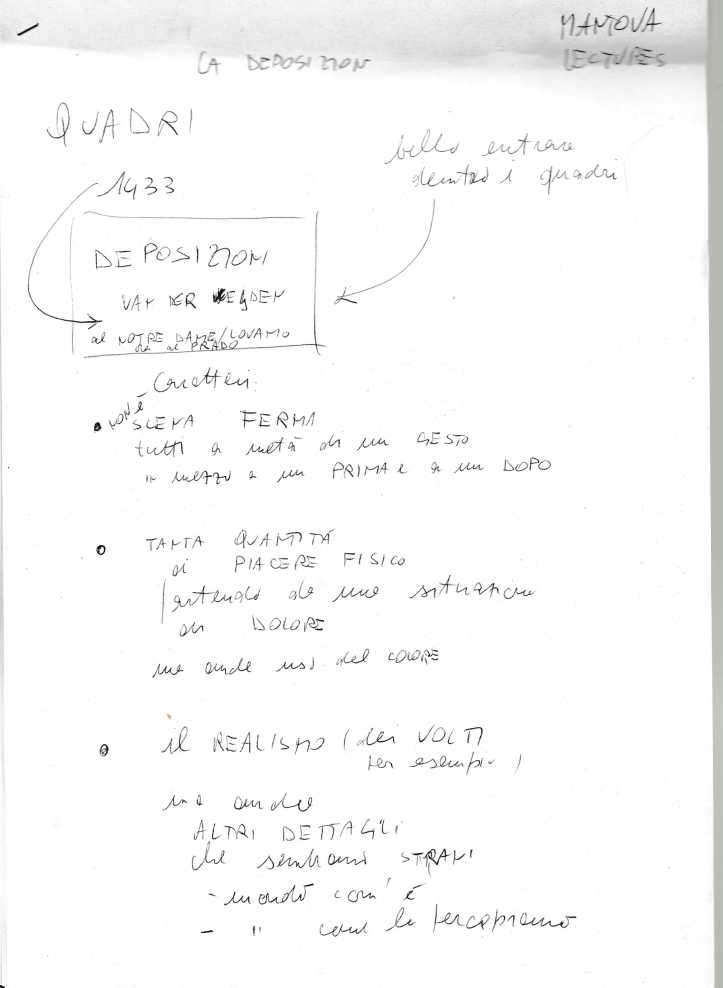 MANTOVA
LECTURES
LA DEPOSIZION
QUADRI
bello entrare
dentro i quadri
1433
DEPOSIZION
VAN DER WEYDEN
al NOTRE DAME/LOVANIO
ora al PRADO
Caratteri
NON È
SCENA FERMA
tutti a metà di un GESTO
in mezzo a un PRIMA e a un DOPO
TANTA QUANTITÀ
di PIACERE FISICO
partendo da una situazione
di DOLORE
ma anche uso del COLORE
il REALISMO (dei VOLTI
per esempio)
ma anche
ALTRI DETTAGLI
che sembrano STRANI
- mondo com'è
- " come lo percepiamo